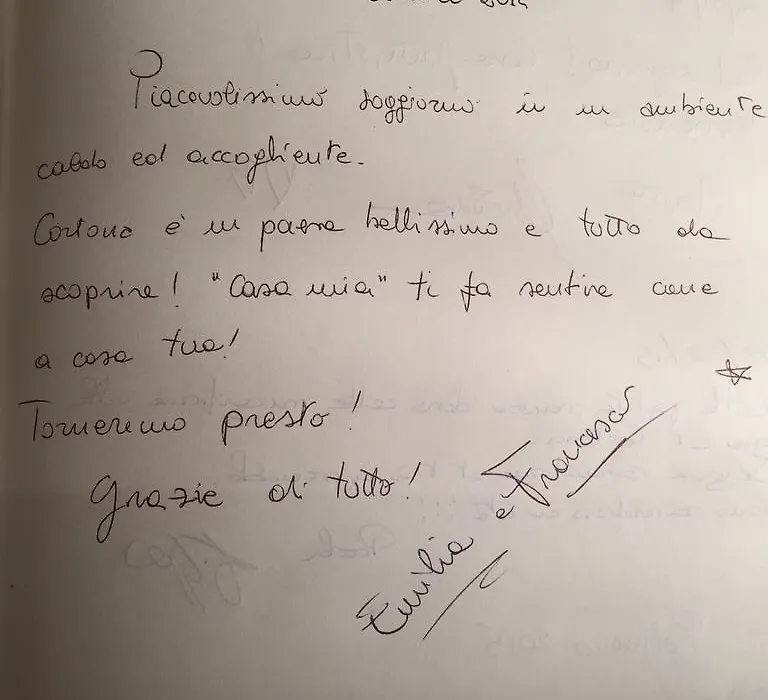 Piacevolissimo soggiorno in un ambiente
caldo ed accogliente.
Cortona è un paese bellissimo e tutto da
scoprire! "Casa mia" ti fa sentire come
a casa tua!
Torneremo presto!
Grazie di tutto!
Emilia e Francesca